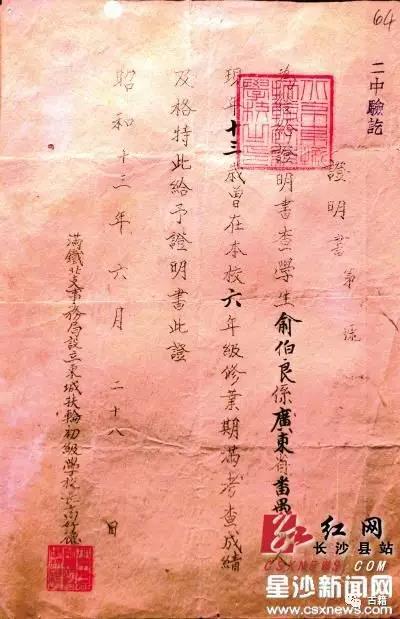 64
二中驗訖
證明書第 號
證明書查學生俞伯良係廣東省番禺
現年十三歲曾在本校六年級修業期滿考查成績
及格特此給予證明書此證
昭和十三年六月二十八日
滿鐵北支事務局設立東城扶輪初級學校長
红网
长沙县站
CSXNEWS.COM
星沙新闻网
www.csxnews.com
古籍